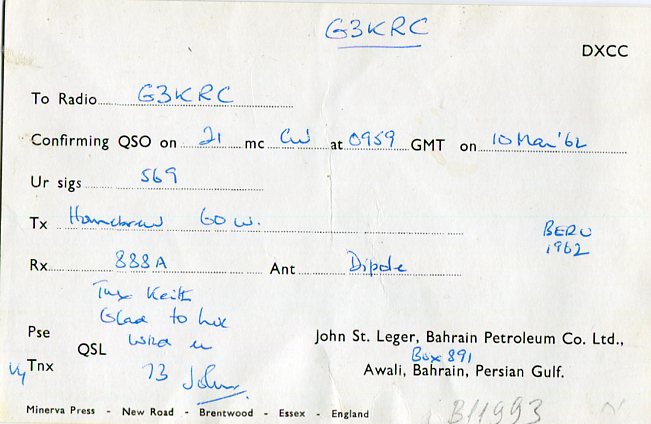 G3KRC
DXCC
To Radio G3KRC
Confirming QSO on 21 mc CW at 0959 GMT on 10 Mar '62
Ur sigs 569
Tx Homebrew 60 W.
BERU
1962
Rx 888A Ant Dipole
Tnx Keith
Glad to
wrk u
Pse
QSL
Vy Tnx
73 John
John St. Leger, Bahrain Petroleum Co. Ltd.,
Box 891
Awali, Bahrain, Persian Gulf.
Minerva Press - New Road - Brentwood - Essex - England
B11993